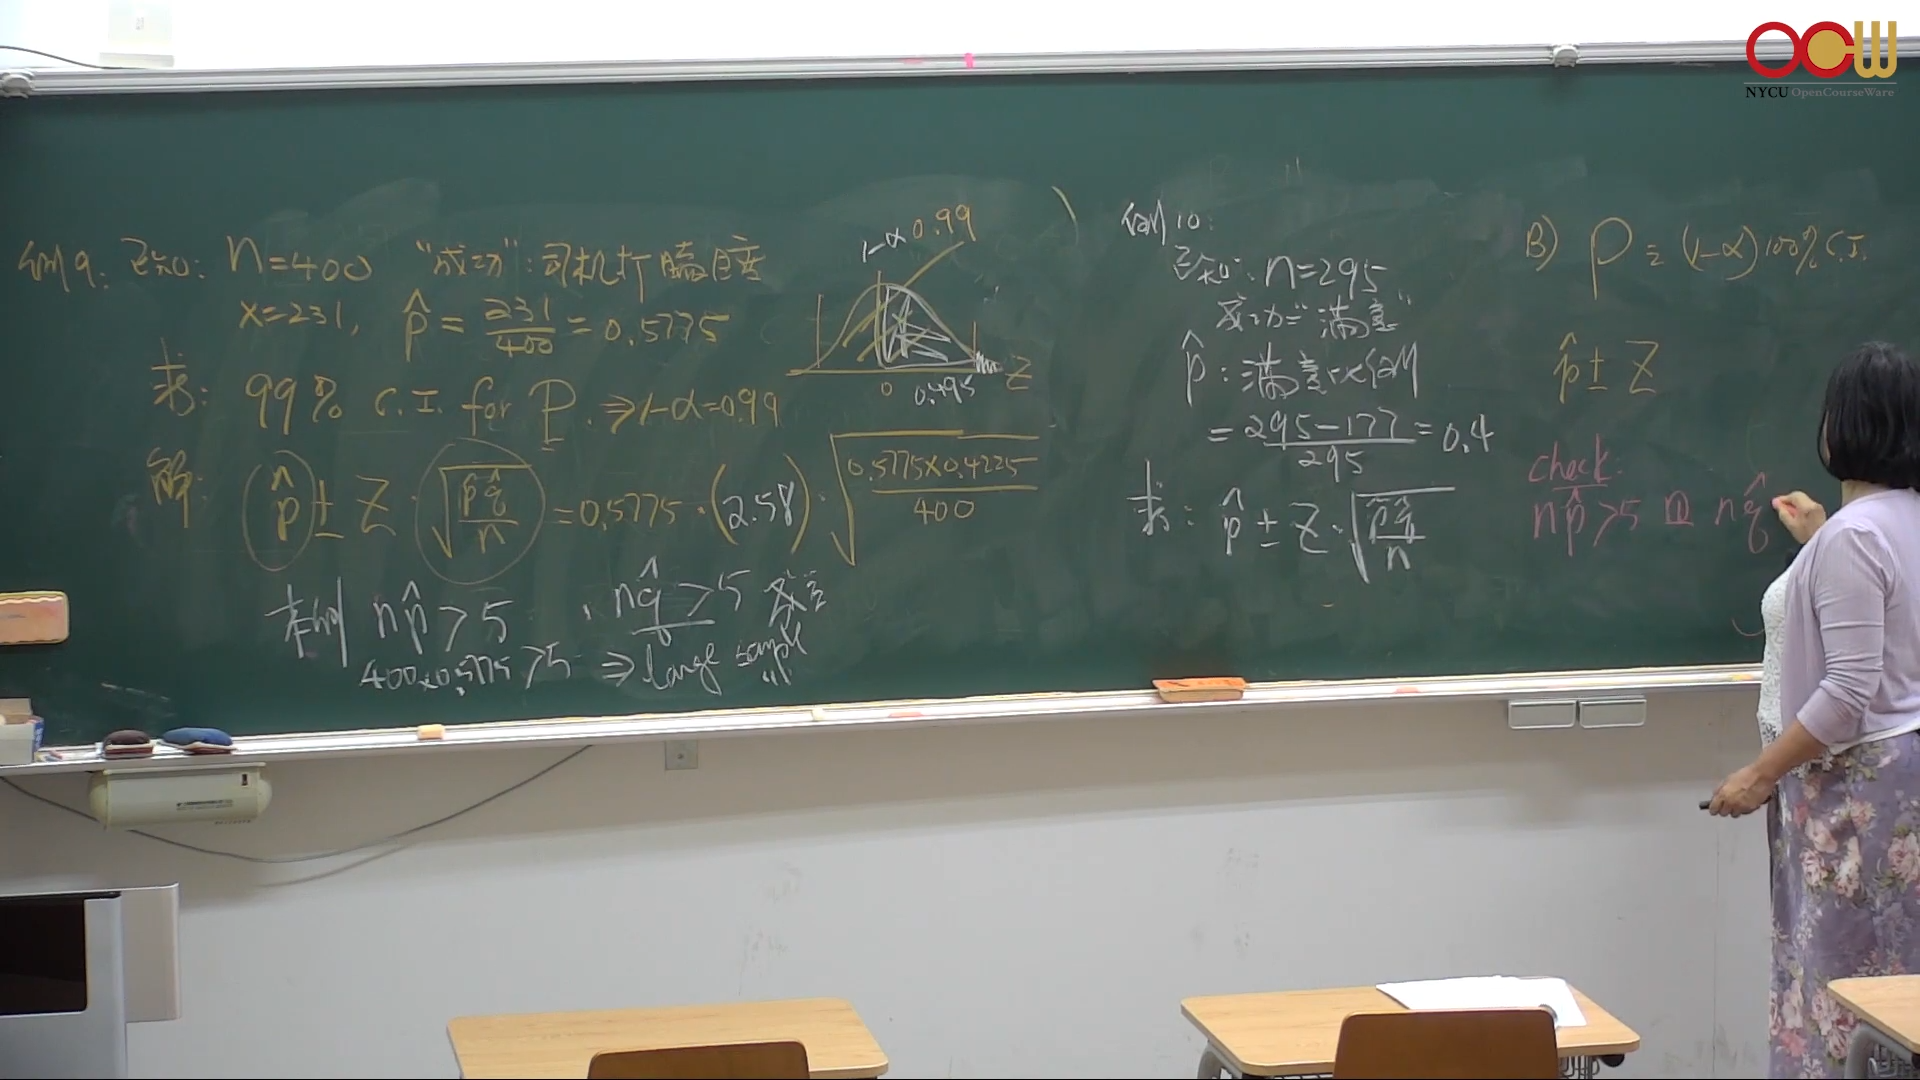 OCW
NYCU OpenCourseWare
例9: 已知: n=400 "成功": 司机打瞌睡
x=231, p̂ = 231/400 = 0.5775
求: 99% C.I. for P. ⇒ 1-α=0.99
解: p̂ ± Z · √(p̂q̂/n) = 0.5775 · (2.58) · √(0.5775×0.4225/400)
本例 np̂ > 5 , nq̂ > 5
400×0.5775 > 5 ⇒ large sample
1-α 0.99
0 0.495 Z
例10:
已知: n=295
成功="満意"
p̂: 満意比例
= 295-177/295 = 0.4
求: p̂ ± Z · √(p̂q̂/n)
B) P 之 (1-α)100% C.I.
p̂ ± Z
check:
np̂ >5 且 nq̂